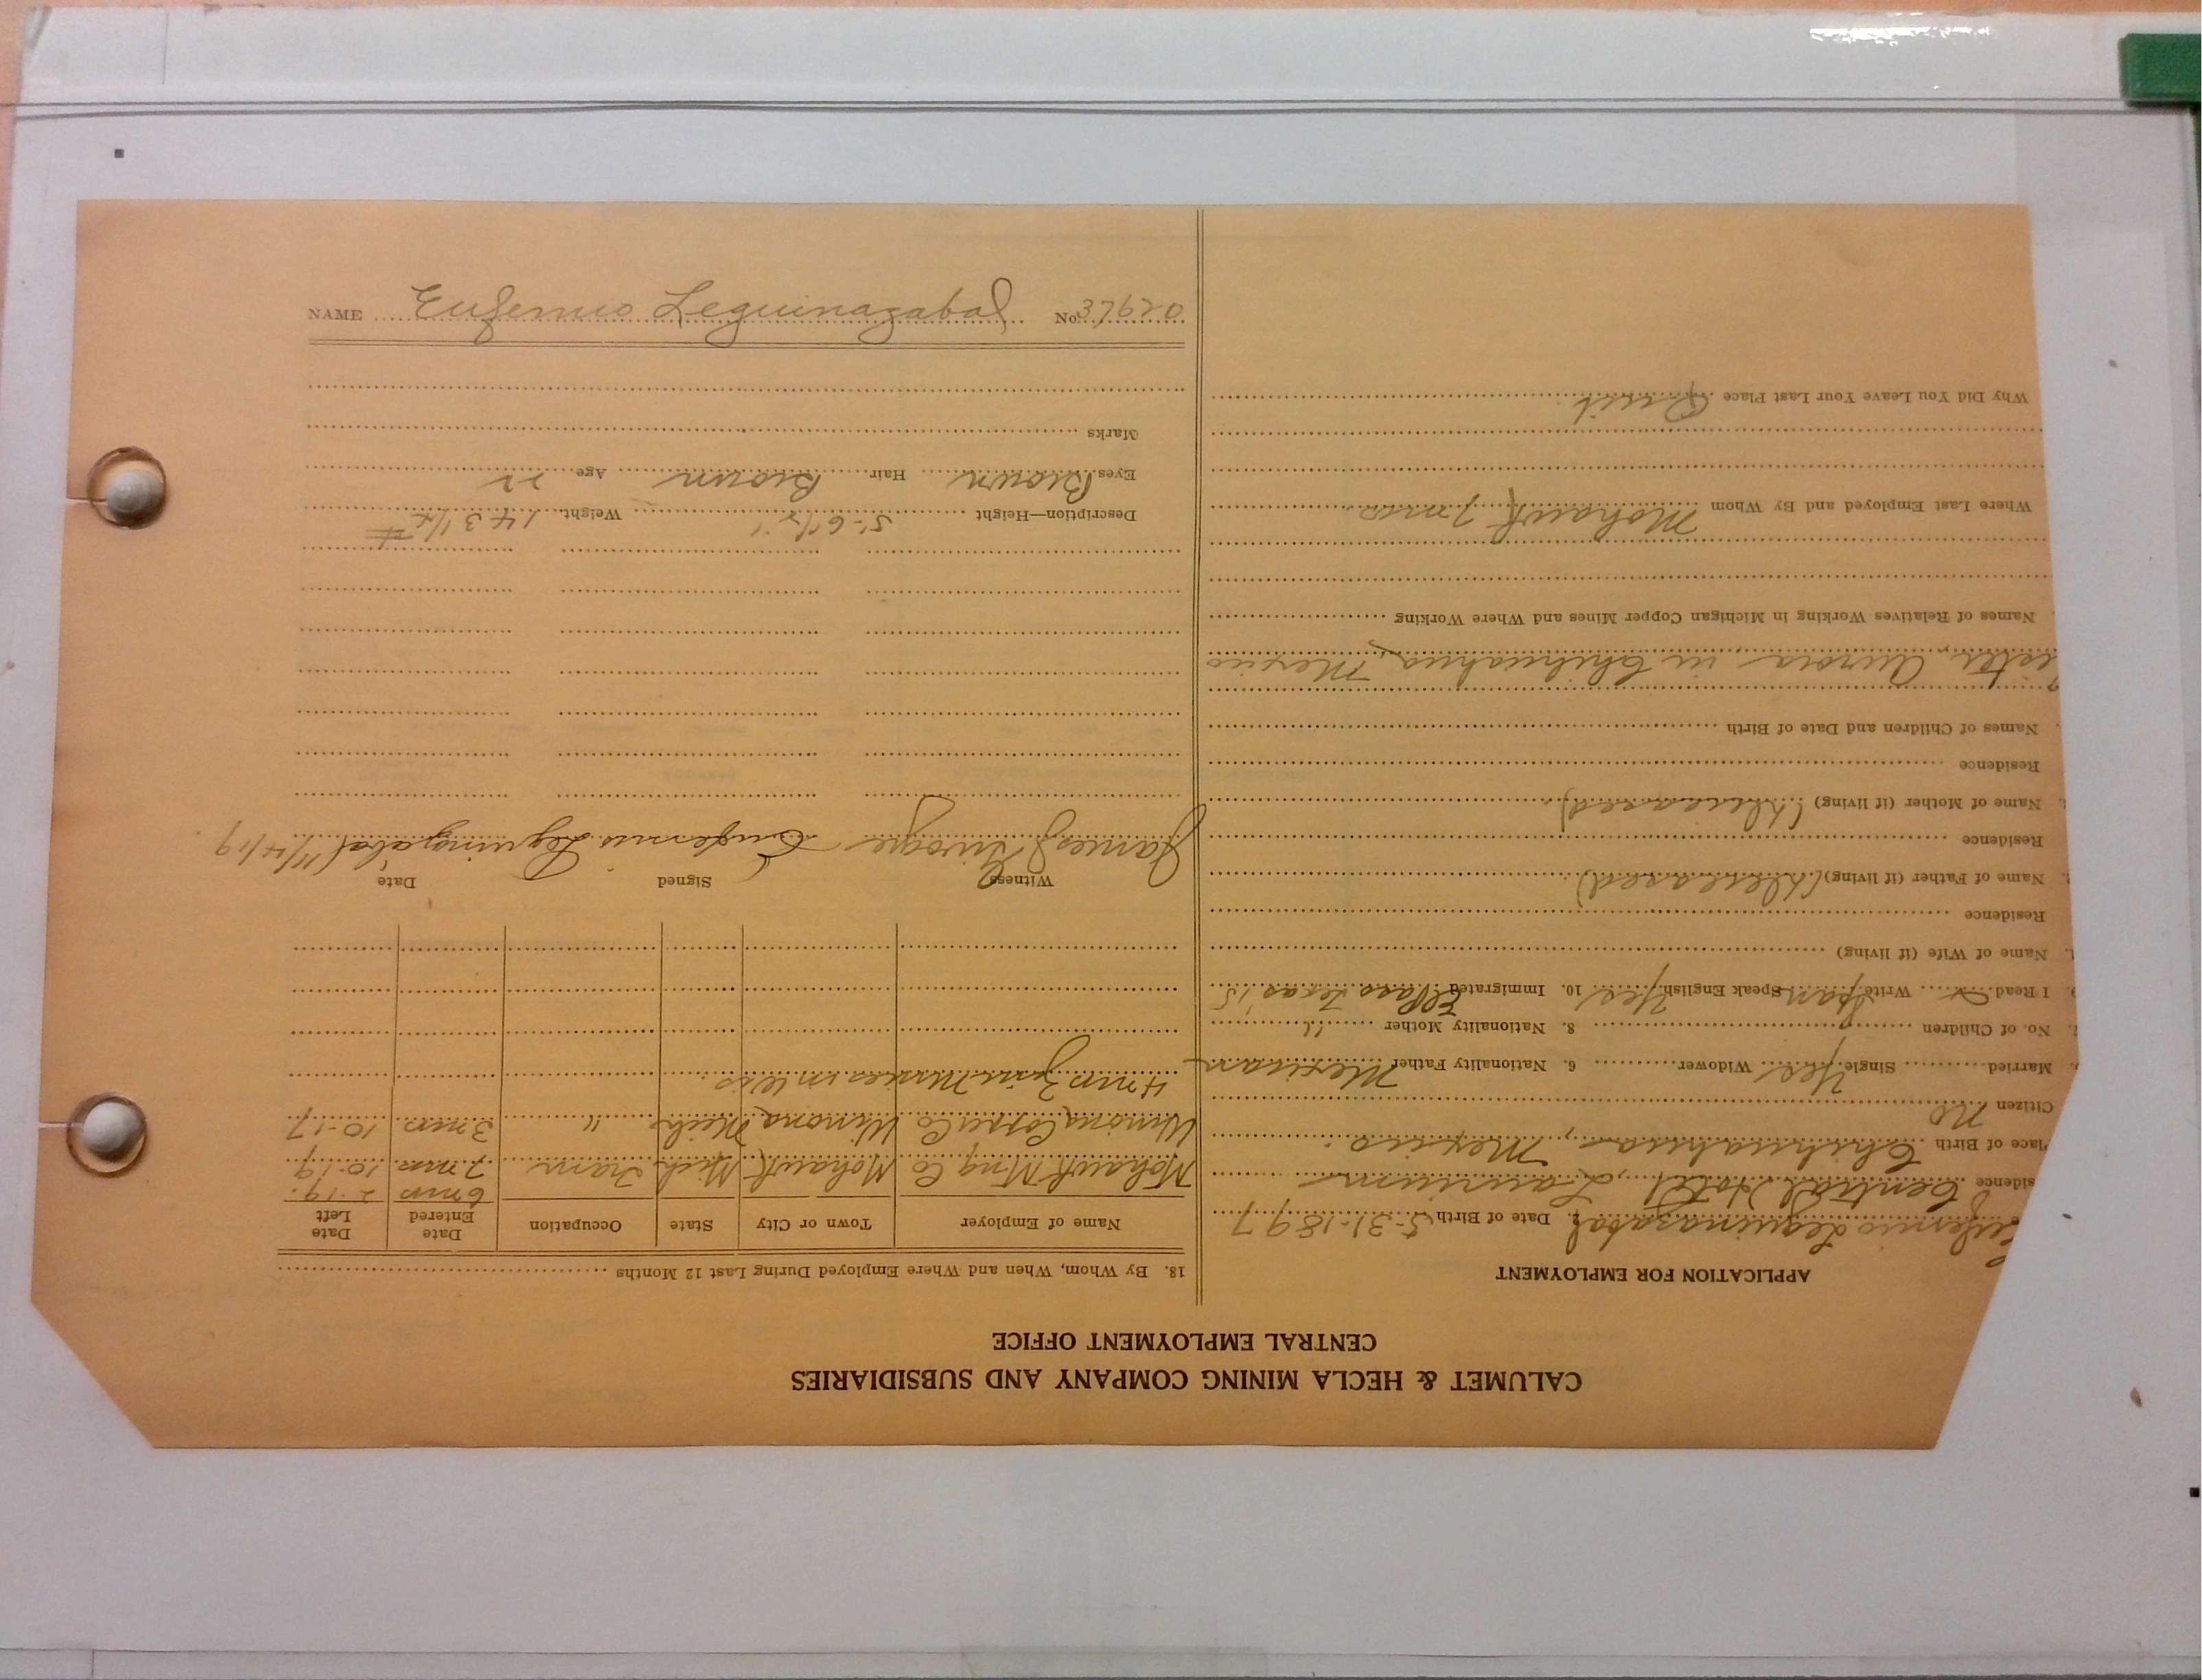 CALUMET & HECLA MINING COMPANY AND SUBSIDIARIES
CENTRAL EMPLOYMENT OFFICE
APPLICATION FOR EMPLOYMENT
Eufemio Leguinazabal 2. Date of Birth 5-31-1897
sidence Central Hotel, Laurium
Place of Birth Chihuahua, Mexico.
Citizen No
Married Single Yes Widower 6. Nationality Father Mexican
No. of Children 8. Nationality Mother "
I Read Write Span Speak English Yes 10. Immigrated El Paso Texas '15
Name of Wife (if living)
Residence
Name of Father (if living) (Deceased)
Residence
Name of Mother (if living) (Deceased)
Residence
Names of Children and Date of Birth
Sister, Aurora in Chihuahua, Mexico
Names of Relatives Working in Michigan Copper Mines and Where Working
Where Last Employed and By Whom Mohawk 7 mos.
Why Did You Leave Your Last Place Quit.
18. By Whom, When and Where Employed During Last 12 Months
Name of Employer Town or City State Occupation Date Entered Date Left
6 mos 2-19.
Mohawk Mng Co Mohawk Mich Tram 7 mos. 10-19
Winona Copper Co Winona Mich " 3 mos. 10-17
4 mos Zinc Mines in Wis.
Witness Signed Date
James J Eufemio Leguinazabal 11/4/19
Description—Height 5'-6½" Weight 143½ #
Eyes Brown Hair Brown Age 22
Marks
NAME Eufemio Leguinazabal No 37620